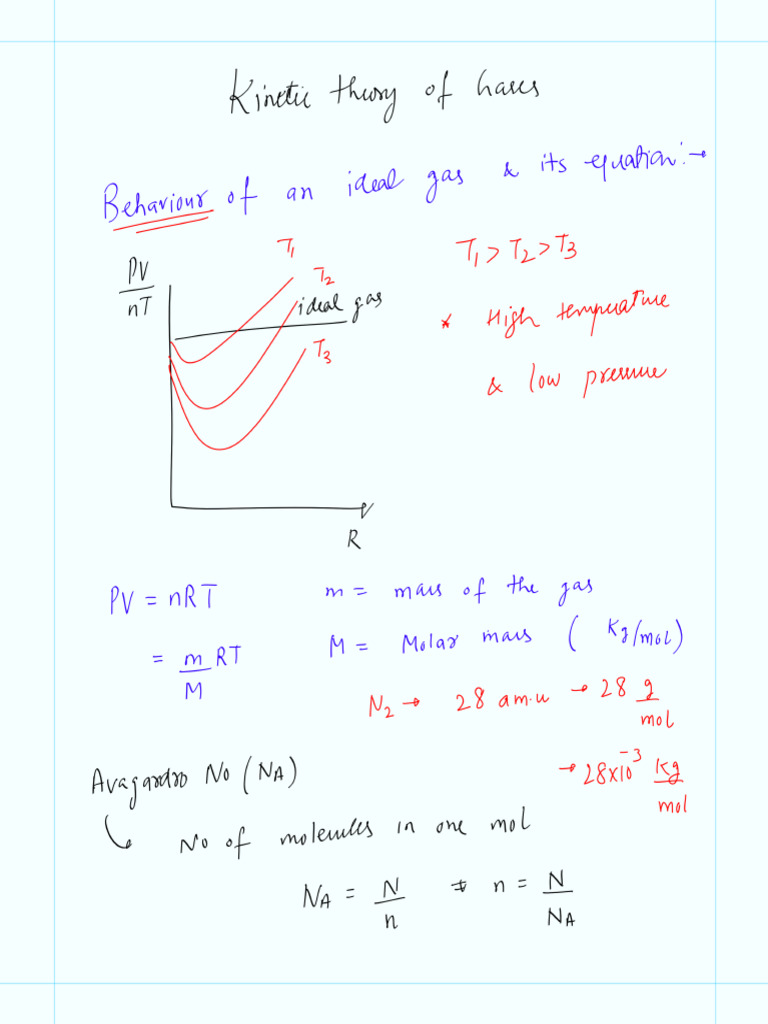 Kinetic theory of Gases
Behaviour of an ideal gas & its equation:→
PV/nT
T₁
T₂
ideal gas
T₃
R
T₁ > T₂ > T₃
* High temperature
& low pressure
PV = nRT
= m/M RT
m = mass of the gas
M = Molar mass ( Kg/mol)
N₂ → 28 am.u → 28 g/mol
→ 28x10⁻³ Kg/mol
Avagardro No (NA)
No of molecules in one mol
NA = N/n ⇒ n = N/NA